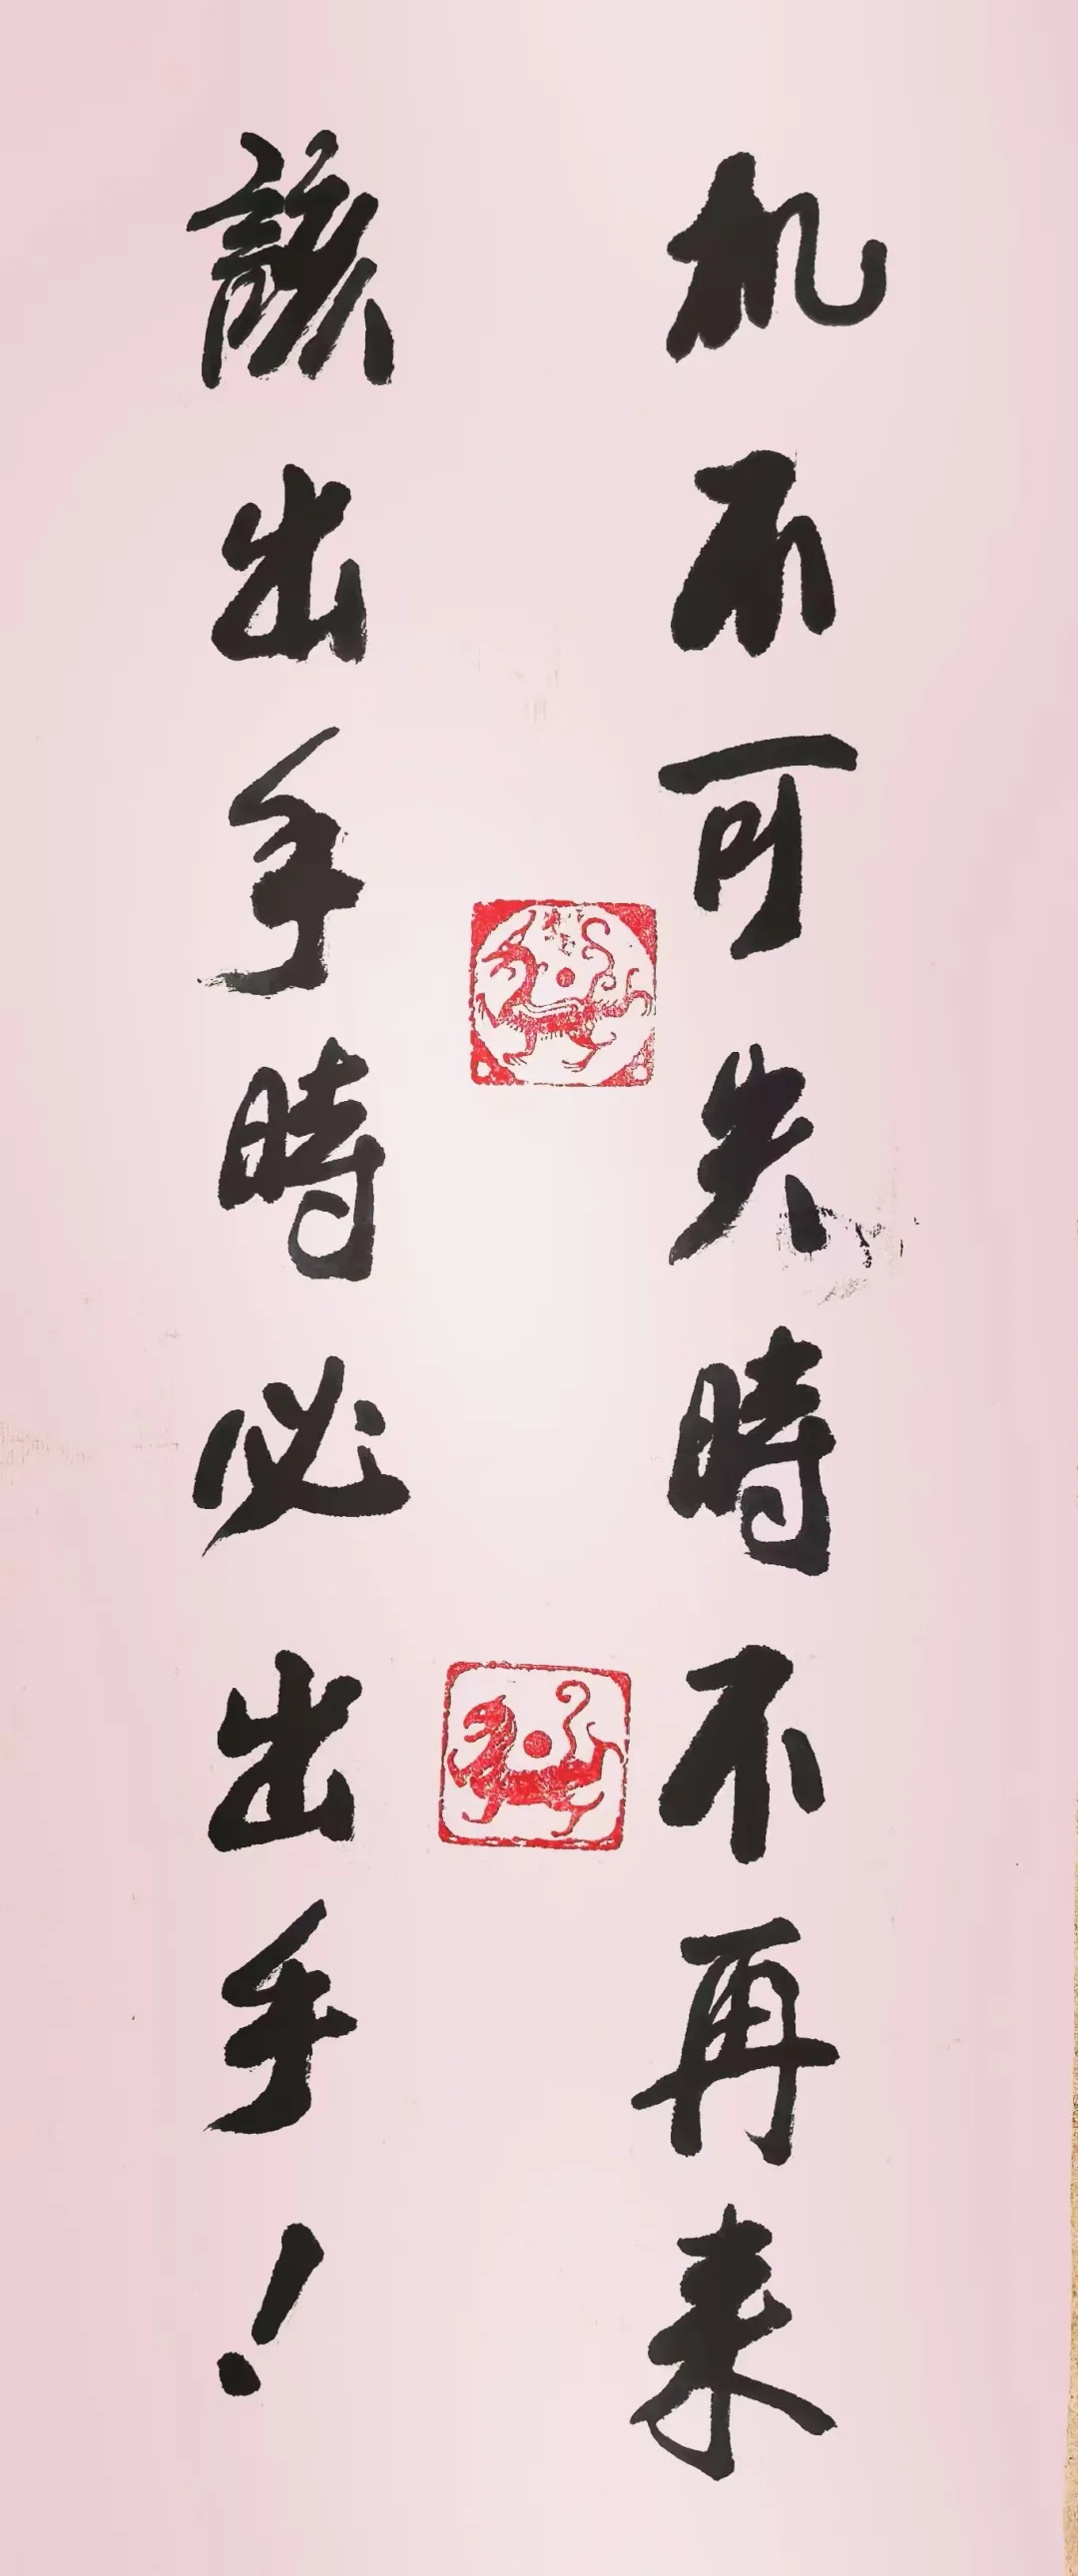 机不可失時不再来
該出手時必出手！